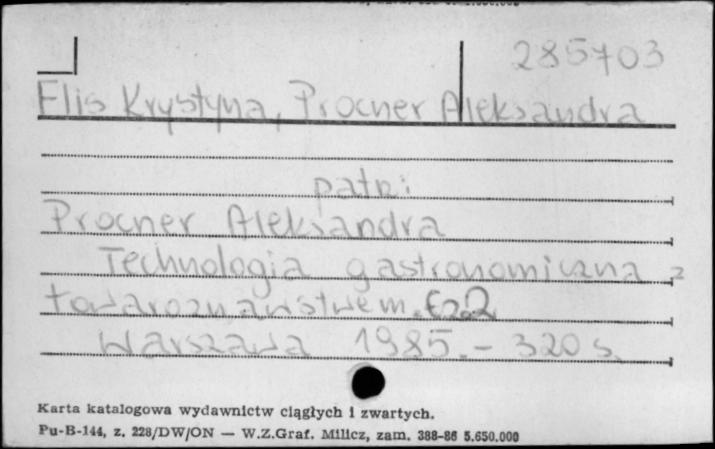 285703
Elis Krystyna, Procner Aleksandra
patrz:
Procner Aleksandra
Technologia gastronomiczna z
towaroznawstwem. Cz.2
Warszawa 1985. - 320 s.
Karta katalogowa wydawnictw ciągłych i zwartych.
Pu-B-144, z. 228/DW/ON — W.Z.Graf. Milicz, zam. 388-86 5.650.000